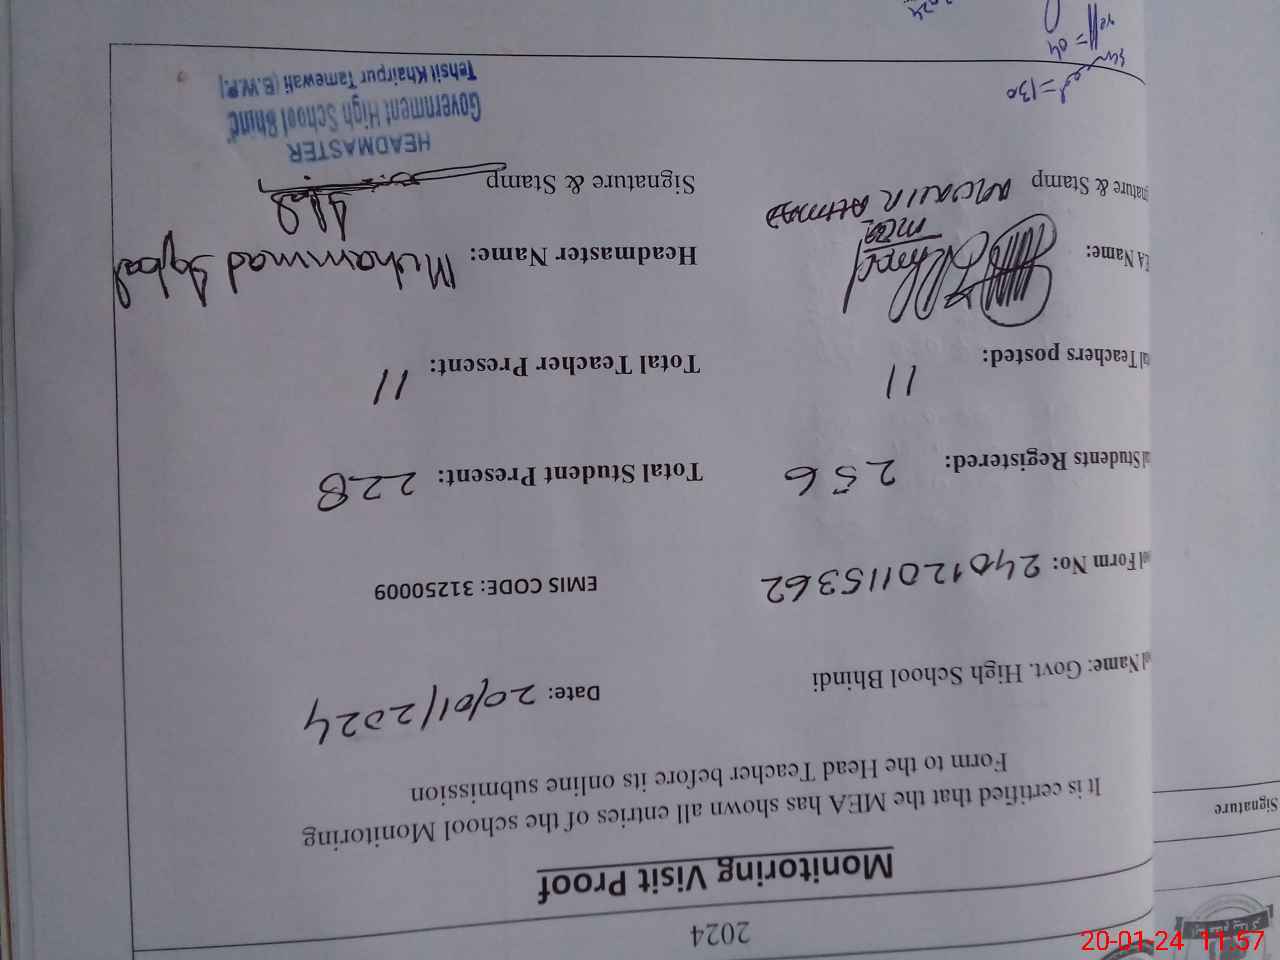 2024
Monitoring Visit Proof
It is certified that the MEA has shown all entries of the school Monitoring
Form to the Head Teacher before its online submission
Name: Govt. High School Bhindi Date: 20/01/2024
Form No: 240120115362 EMIS CODE: 31250009
Students Registered: 256 Total Student Present: 228
Teachers posted: 11 Total Teacher Present: 11
Name: Headmaster Name: Muhammad Iqbal
MEA
& Stamp Signature & Stamp
HEADMASTER
Government High School Bhind
Tehsil Khairpur Tamewali (B.W.P.)
= 130
= 04
Signature
20-01-24 11:57